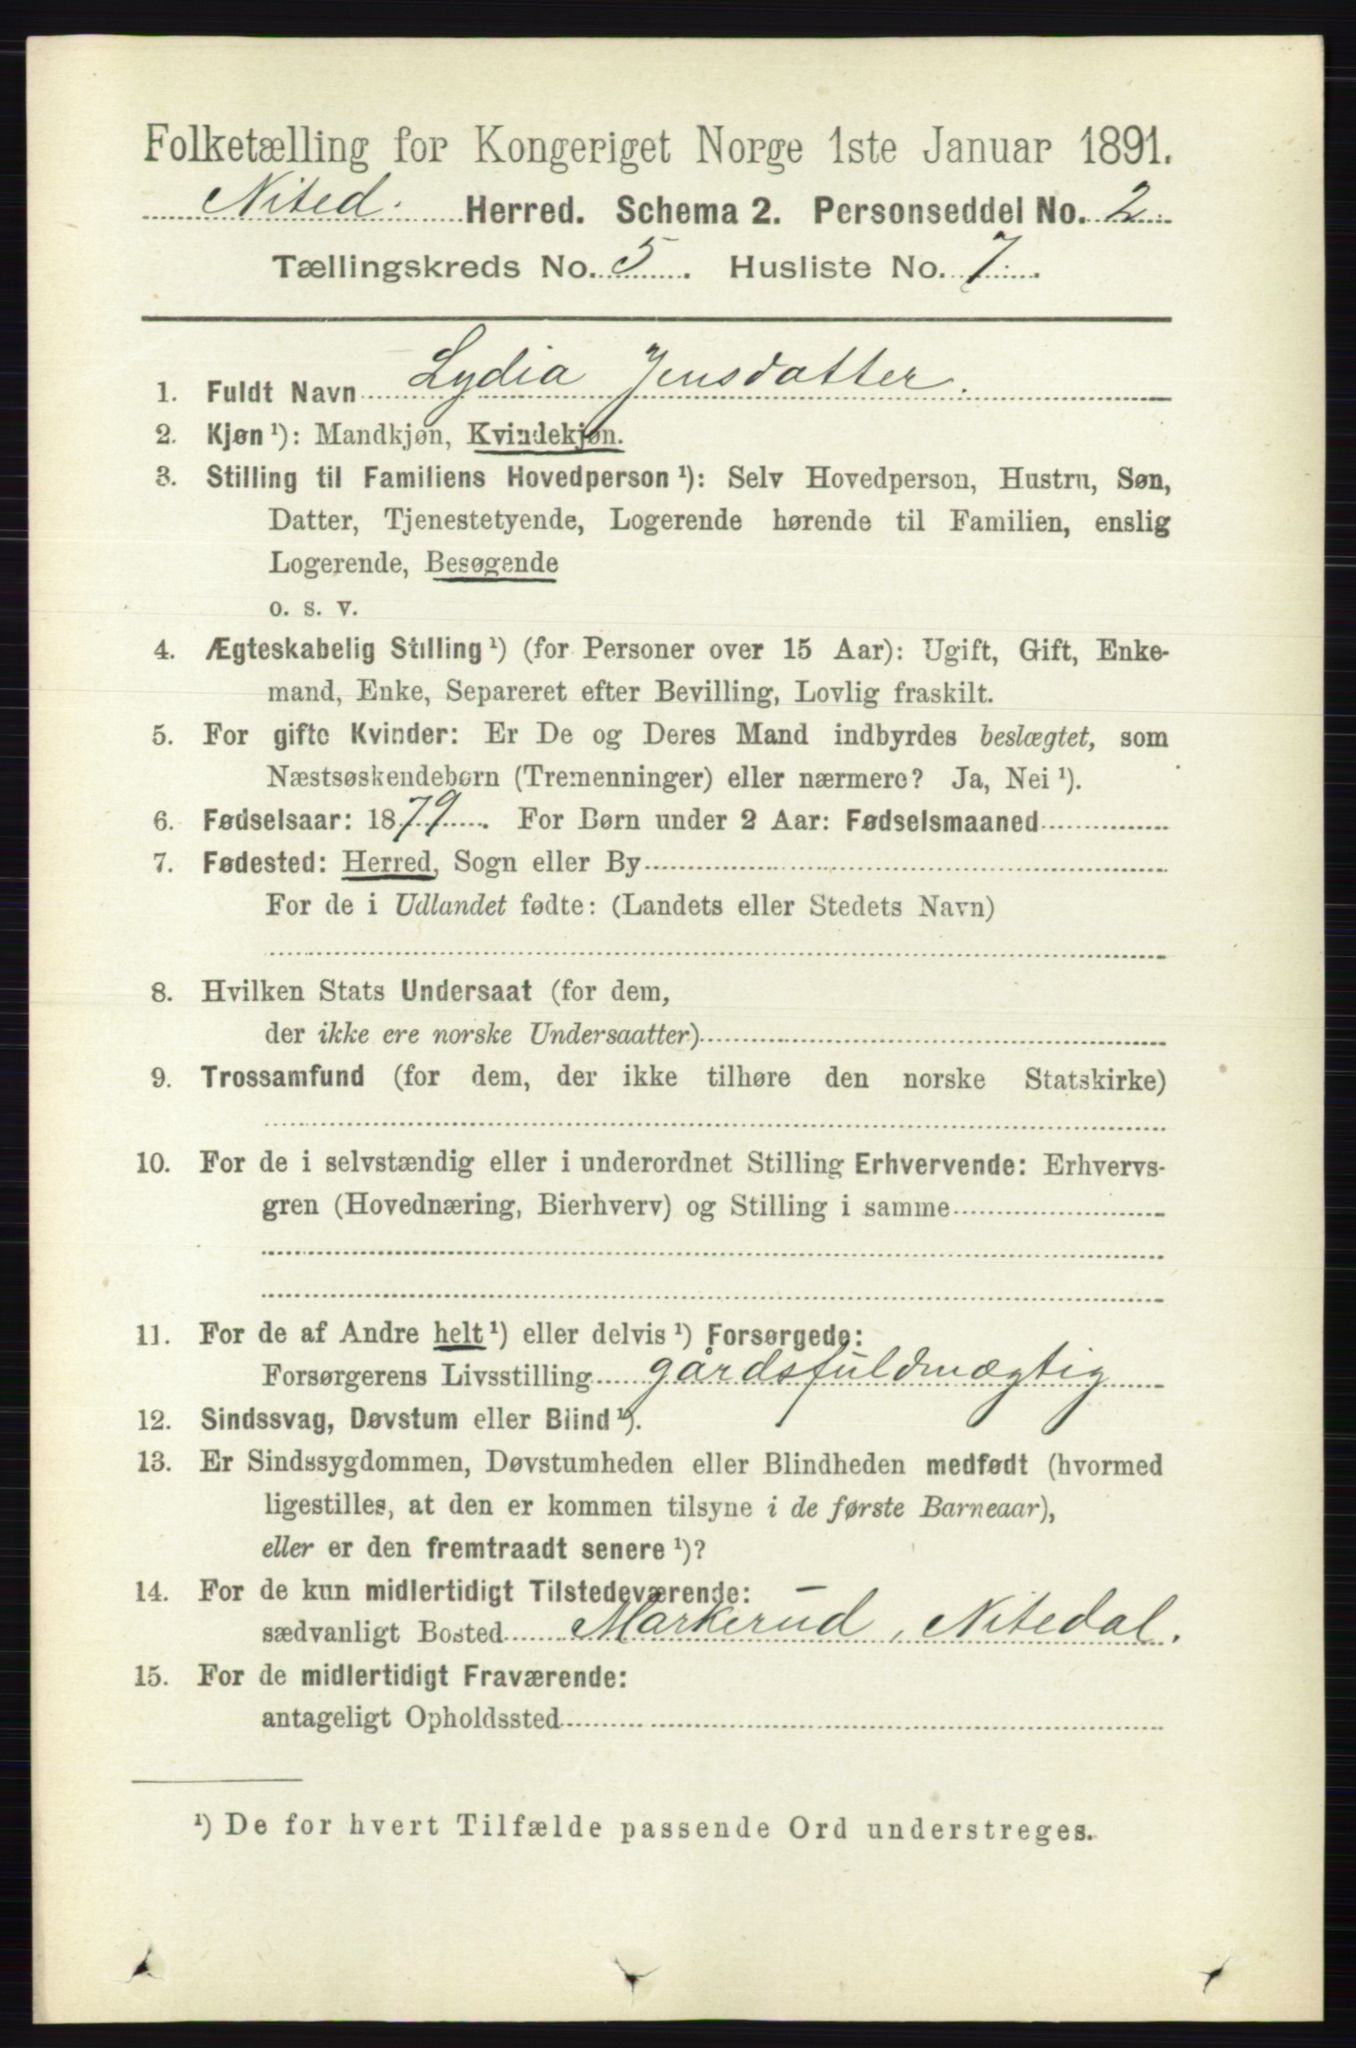 Folketælling for Kongeriget Norge 1ste Januar 1891.
Nited. Herred. Schema 2. Personseddel No. 2
Tællingskreds No. 5. Husliste No. 7.
1. Fuldt Navn Lydia Jensdatter.
2. Kjøn ¹): Mandkjøn, Kvindekjøn.
3. Stilling til Familiens Hovedperson ¹): Selv Hovedperson, Hustru, Søn,
Datter, Tjenestetyende, Logerende hørende til Familien, enslig
Logerende, Besøgende
o. s. v.
4. Ægteskabelig Stilling ¹) (for Personer over 15 Aar): Ugift, Gift, Enke-
mand, Enke, Separeret efter Bevilling, Lovlig fraskilt.
5. For gifte Kvinder: Er De og Deres Mand indbyrdes beslægtet, som
Næstsøskendebørn (Tremenninger) eller nærmere? Ja, Nei ¹).
6. Fødselsaar: 1879. For Børn under 2 Aar: Fødselsmaaned
7. Fødested: Herred, Sogn eller By
For de i Udlandet fødte: (Landets eller Stedets Navn)
8. Hvilken Stats Undersaat (for dem,
der ikke ere norske Undersaatter)
9. Trossamfund (for dem, der ikke tilhøre den norske Statskirke)
10. For de i selvstændig eller i underordnet Stilling Erhvervende: Erhvervs-
gren (Hovednæring, Bierhverv) og Stilling i samme
11. For de af Andre helt ¹) eller delvis ¹) Forsørgede:
Forsørgerens Livsstilling gårdsfuldmægtig
12. Sindssvag, Døvstum eller Blind ¹).
13. Er Sindssygdommen, Døvstumheden eller Blindheden medfødt (hvormed
ligestilles, at den er kommen tilsyne i de første Barneaar),
eller er den fremtraadt senere ¹)?
14. For de kun midlertidigt Tilstedeværende:
sædvanligt Bosted Markerud, Nitedal.
15. For de midlertidigt Fraværende:
antageligt Opholdssted
¹) De for hvert Tilfælde passende Ord understreges.